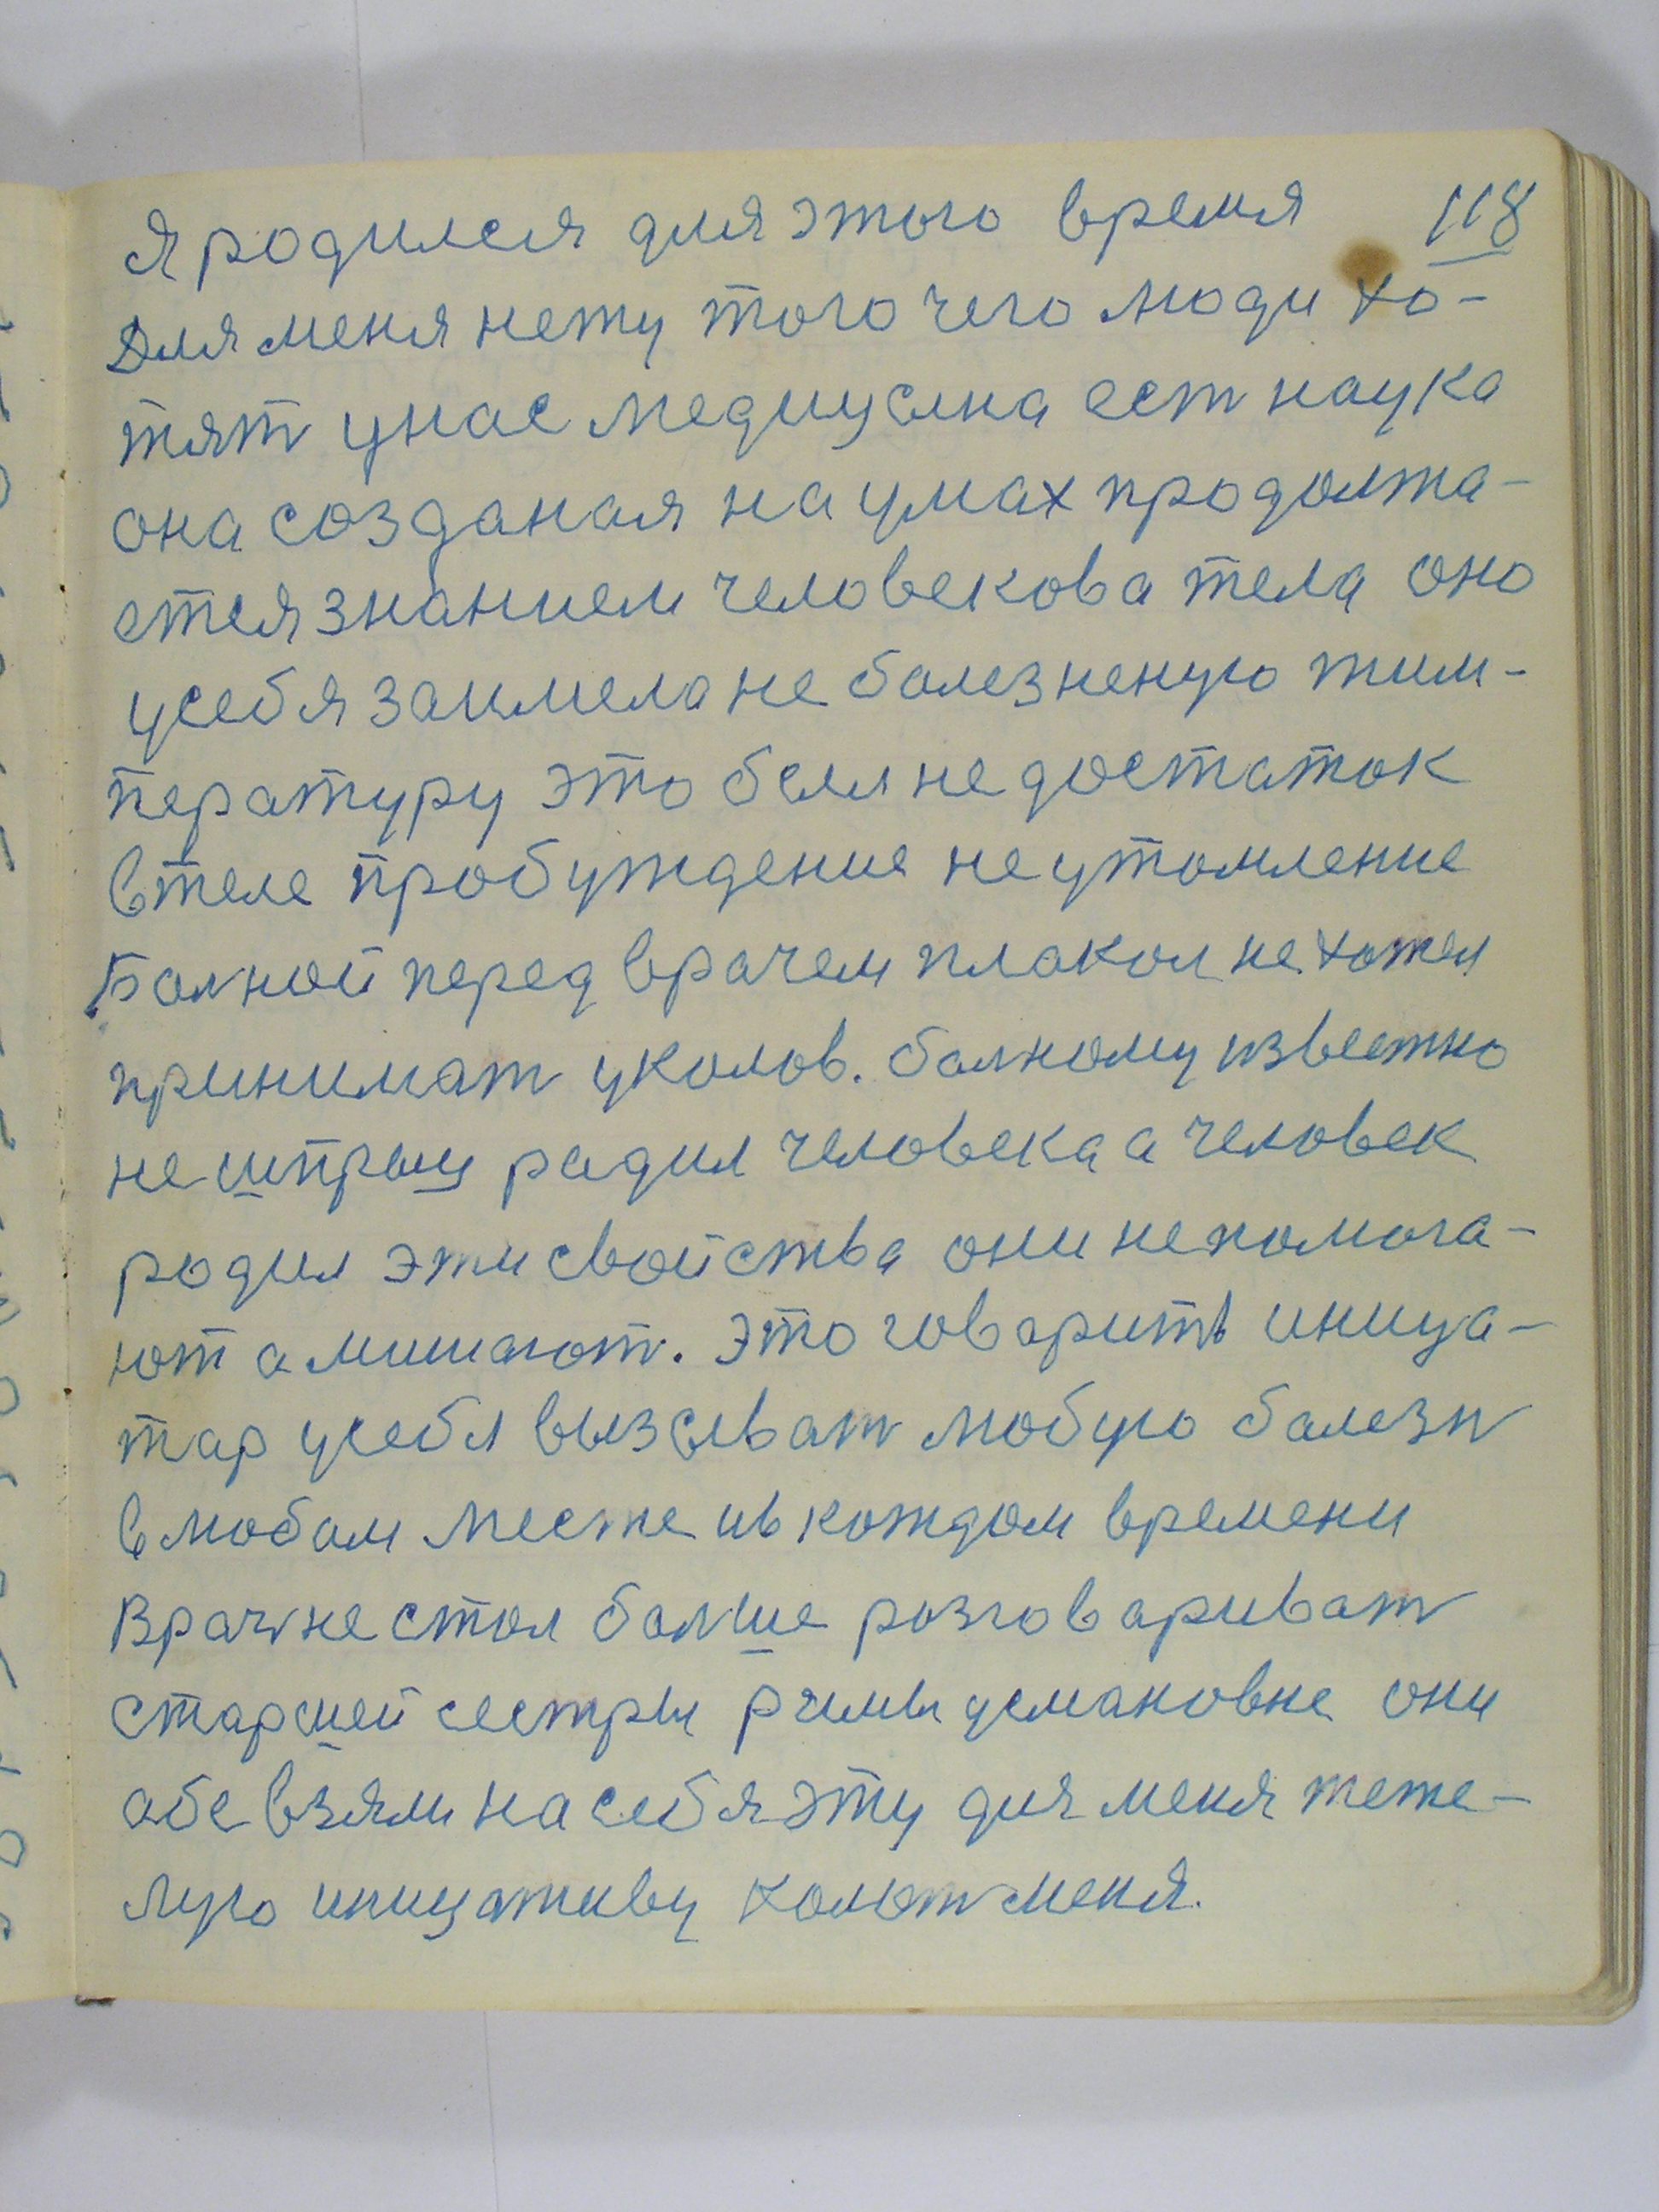 Я родился для этого время 118
Для меня нету того чего люди хо-
тят у нас медицына ест наука
она созданая на умах продолжа-
ется знанием человекова тела оно
у себя заимело не болезненую тим-
пературу это был недостаток
в теле пробуждение не утомление
Болной перед врачем плокол не хотел
принимат уколов. болному известно
не шпрыц радил человека а человек
родил эти свойства они не помога-
ют а мишают. Это говорить иница-
тар у себя вызыват любую болезн
в любом месте и в кождом времени
Врач не стол болше розговариват
старшей сестры римы усмановне они
обе взяли на себя эту для меня теже-
лую иницативу колот меня.